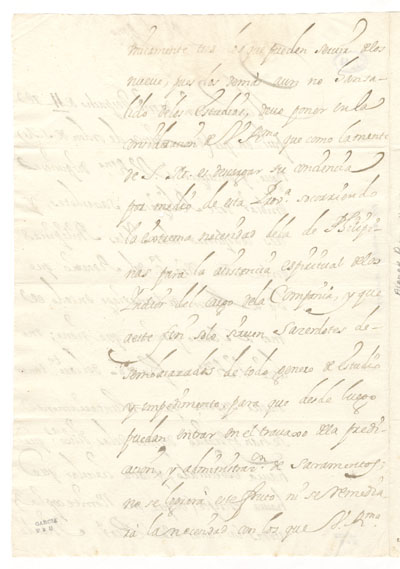 unicamente tres los que pueden servir de los
nueve, pues los demas aun no han sa-
lido de los Estudios, devo poner en la
consideracion de S. Rma. que como la mente
de S. M. es descargar su conciencia
por medio de esta Prov.a socorriendo
la extrema necesidad de la de Philipi-
nas para la asistencia espiritual de los
Indios del cargo de la Compañia, y que
a este fin solo sirven Sacerdotes de-
sembarazados de todo genero de Estudios
y impedimento, para que desde luego
puedan entrar en el travajo de la predi-
cacion, y administrac.on de Sacramentos;
no se logrará este fruto ni se remedia
rá la necesidad con los que S. Rma.
GARCIA